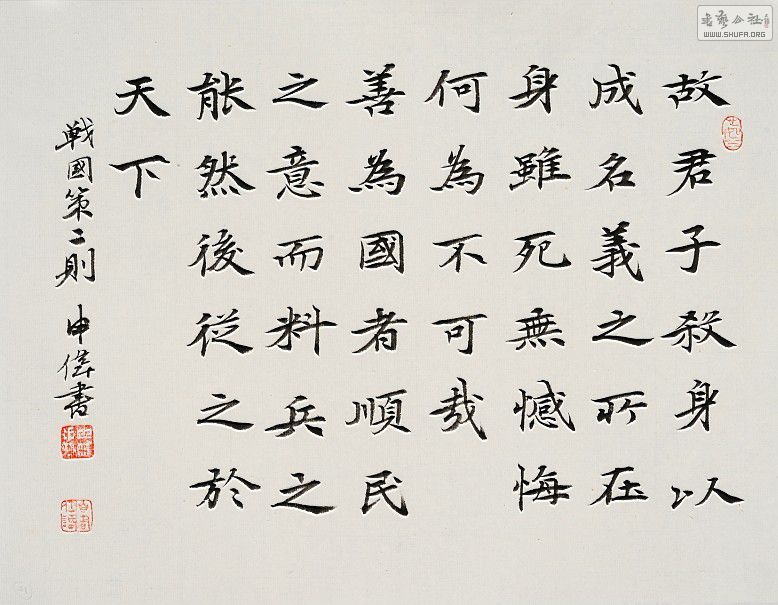 故君子殺身以
成名義之所在
身雖死無憾悔
何為不可哉
善為國者順民
之意而料兵之
能然後從之於
天下
戰國策二則 申偉書
書藝公社
WWW.SHUFA.ORG